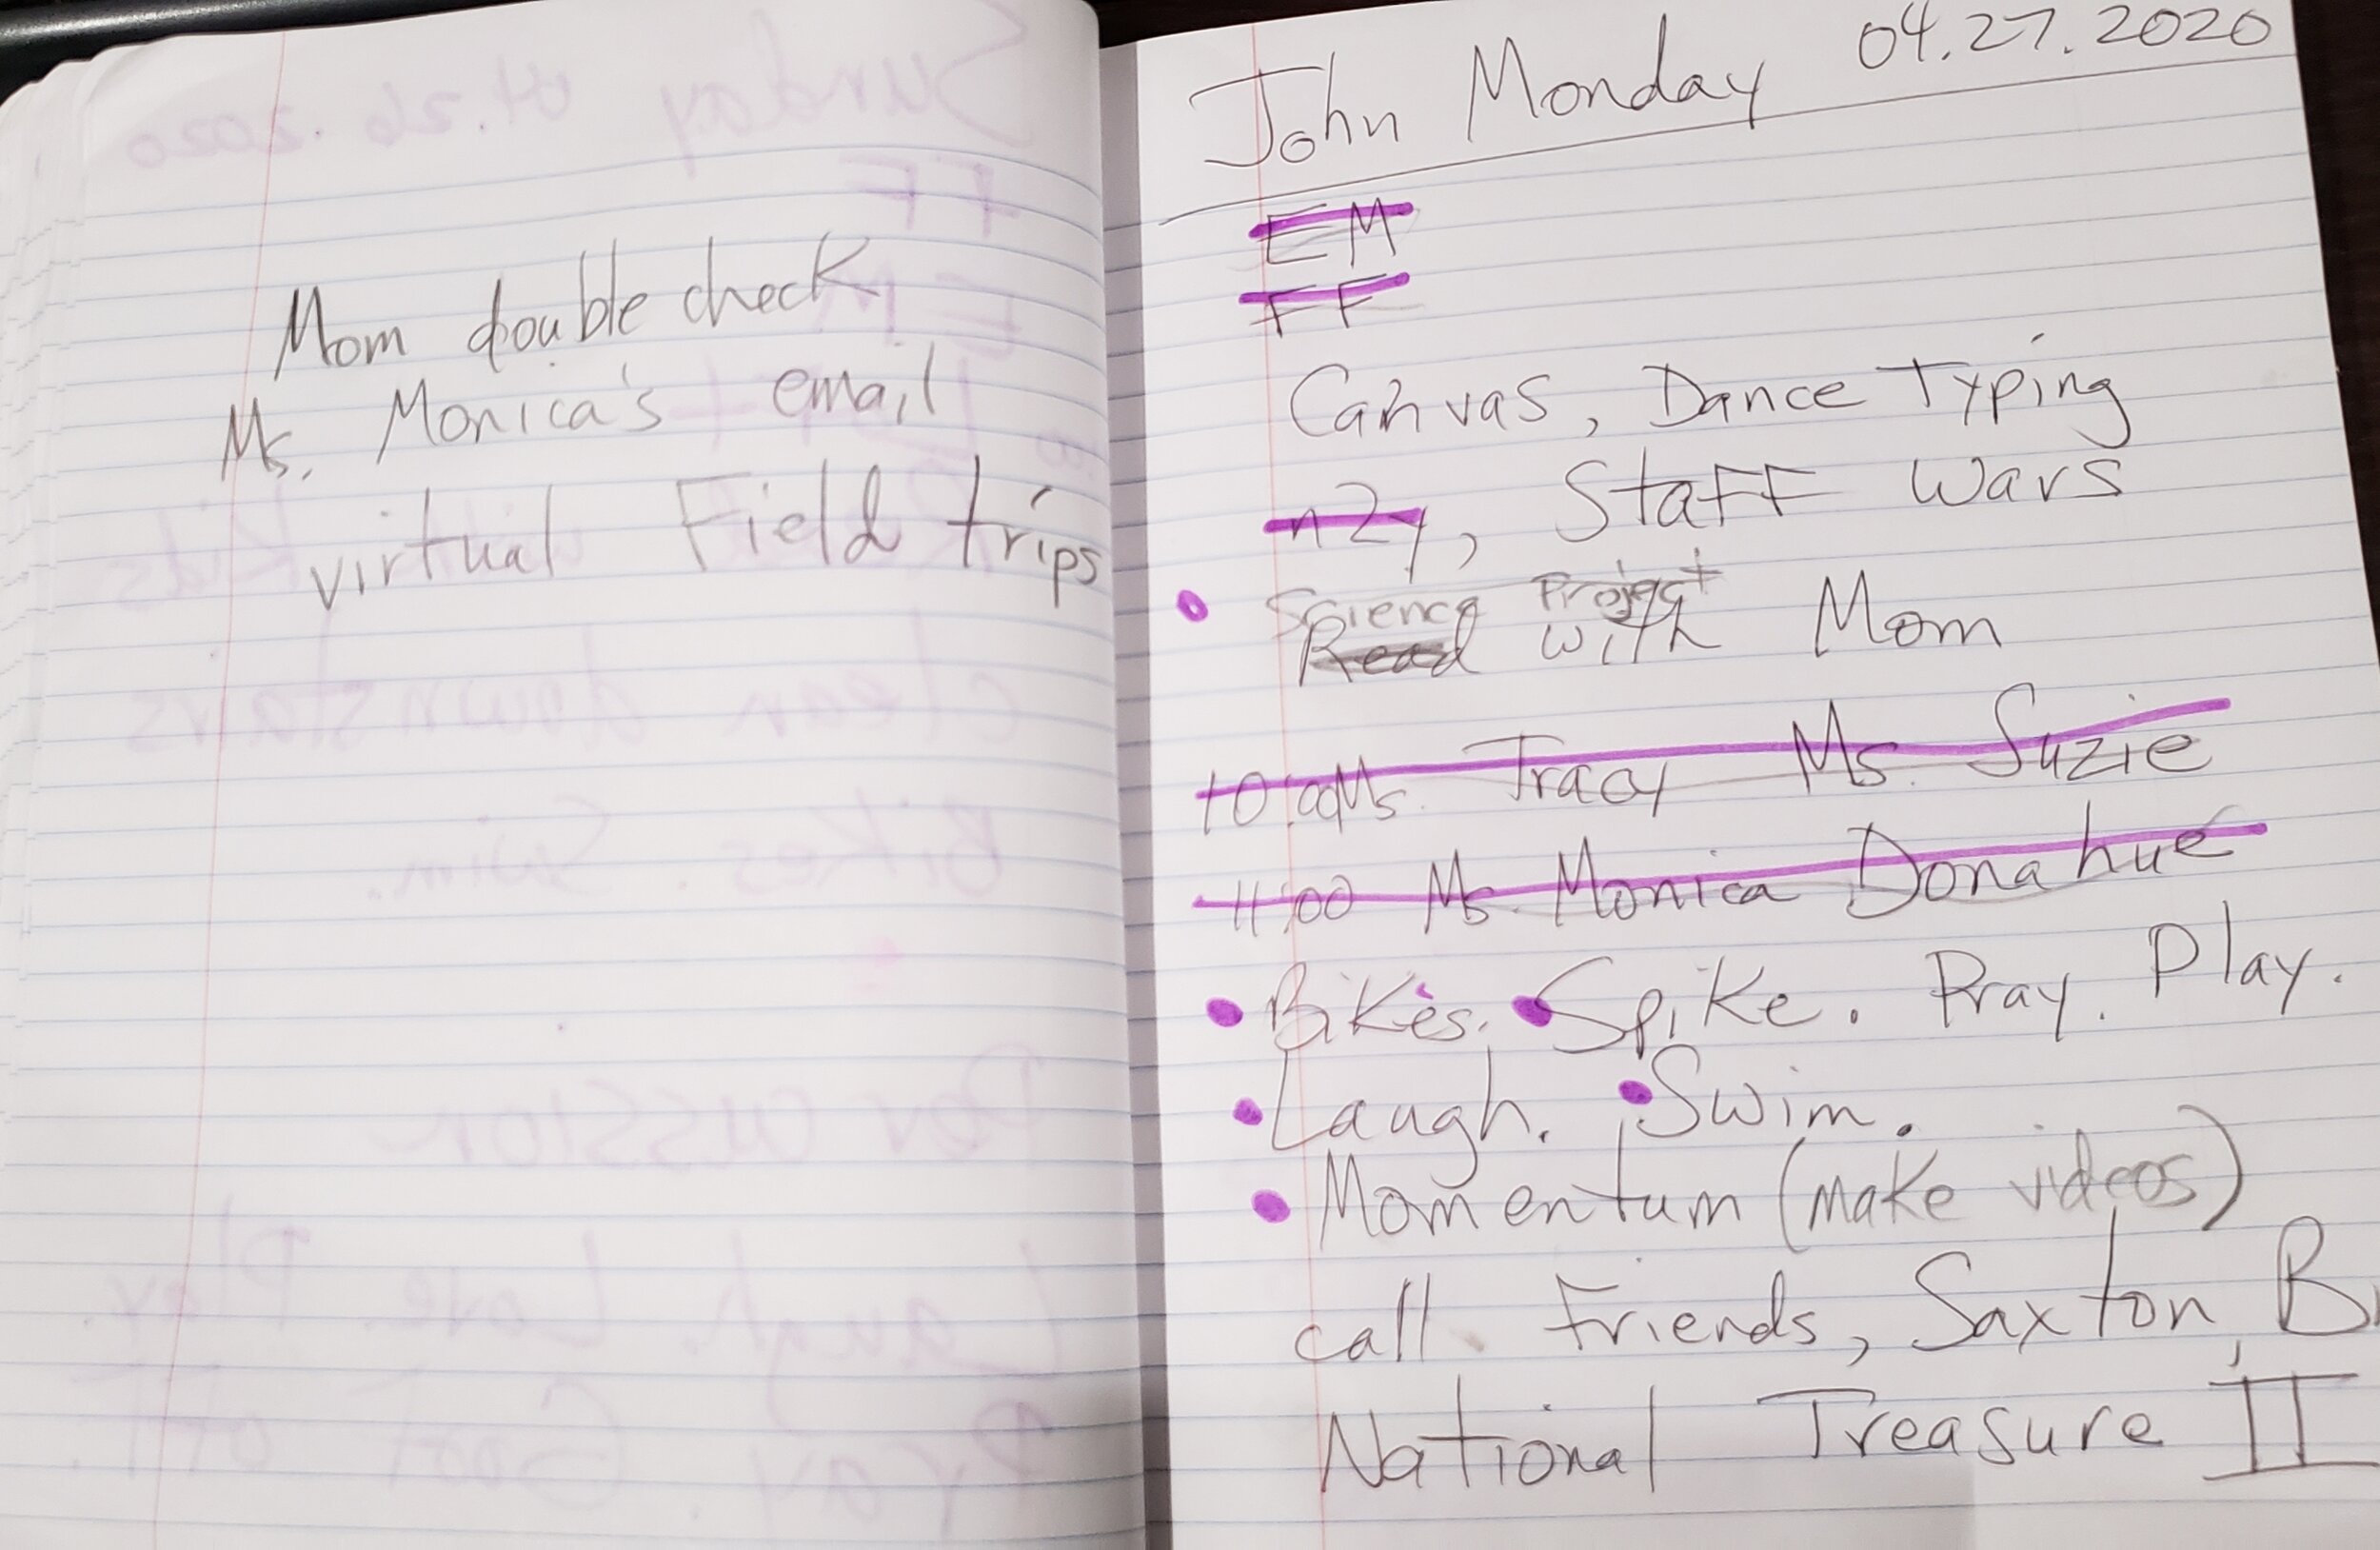 Mom double check
Ms. Monica's email
virtual Field trips
John Monday 04.27.2020
EM
FF
Canvas, Dance Typing
n2y, Staff Wars
Science Project
Read with Mom
10:00 Ms. Tracy Ms. Suzie
11:00 Ms. Monica Donahue
Bikes. Spike. Pray. Play.
Laugh. Swim.
Momentum (make videos)
call Friends, Saxton,
National Treasure II